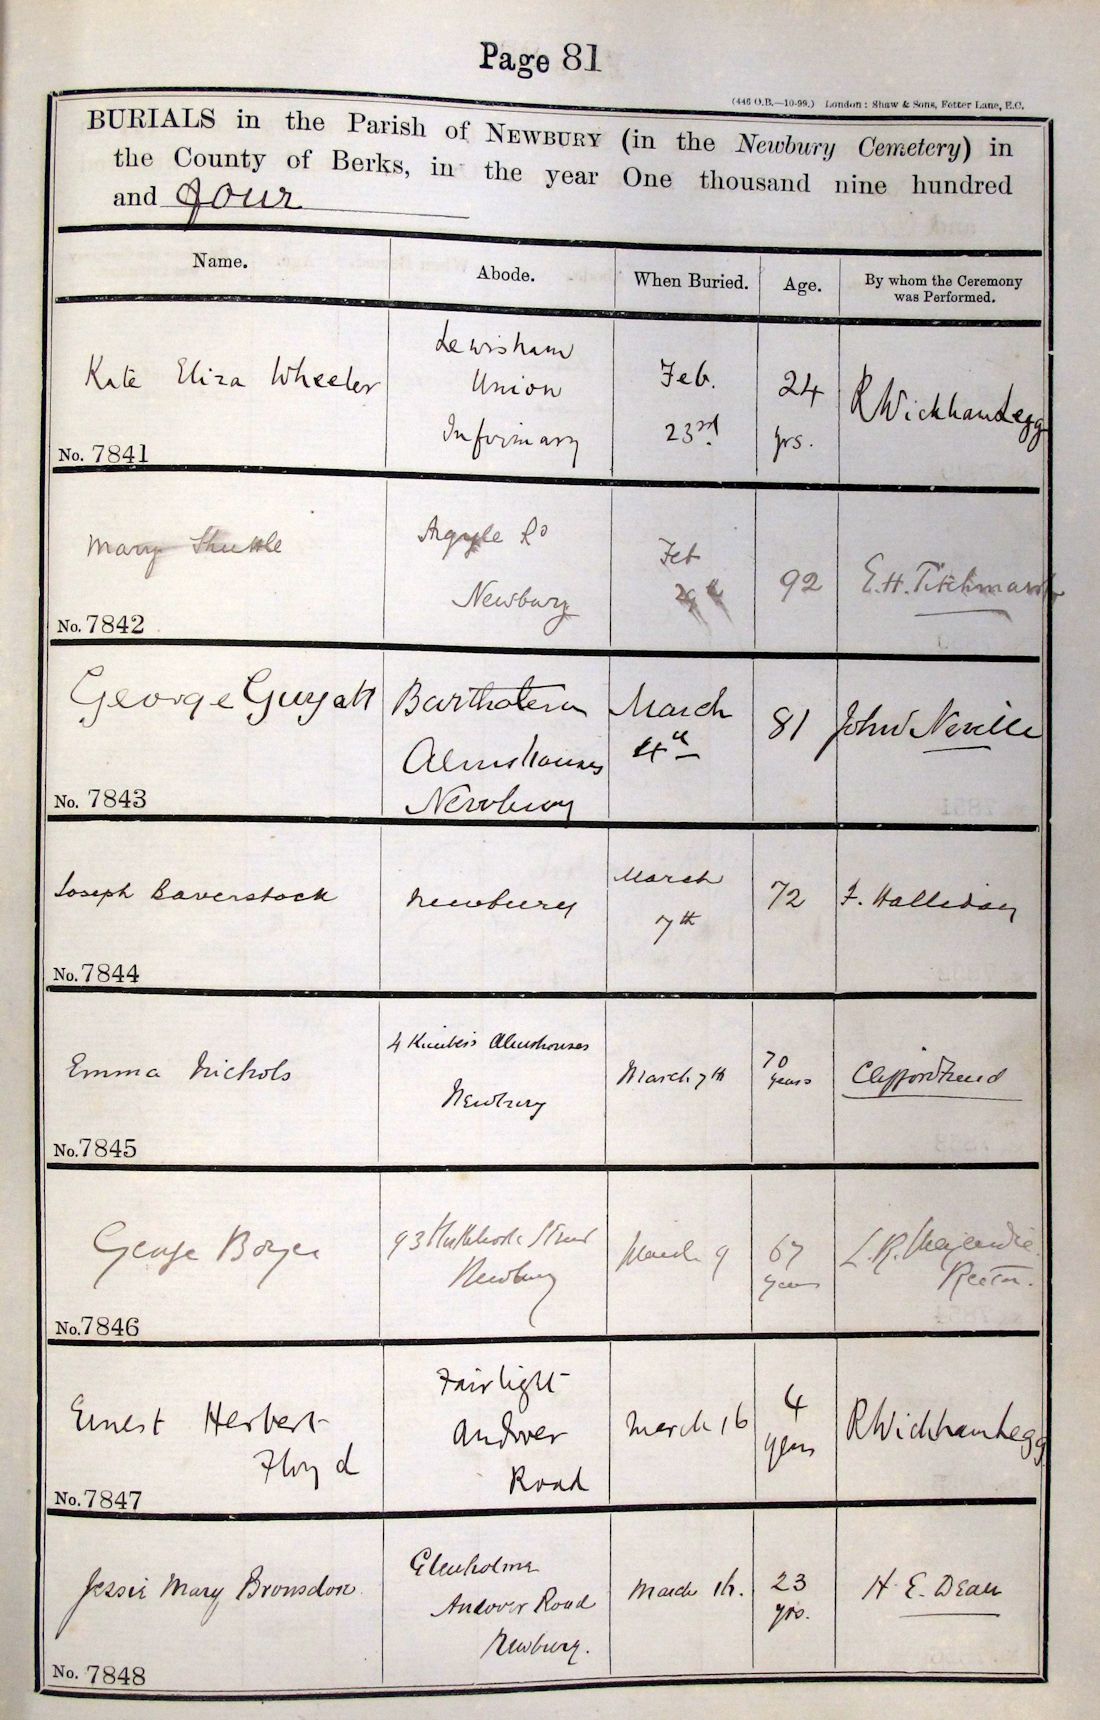 Page 81
(446 O.B.—10-99.) London: Shaw & Sons, Fetter Lane, E.C.
BURIALS in the Parish of NEWBURY (in the Newbury Cemetery) in
the County of Berks, in the year One thousand nine hundred
and four
Name. Abode. When Buried. Age. By whom the Ceremony was Performed.
Kate Eliza Wheeler
Lewisham
Union
Infirmary
Feb.
23rd
24
yrs.
R Wickham Legg
No. 7841
Mary Shuttle
Argyle Rd
Newbury
Feb
29th
92
E.H. Titchmarsh
No. 7842
George Guyatt
Bartholem
Almshouses
Newbury
March
4th
81
John Neville
No. 7843
Joseph Baverstock
Newbury
March
7th
72
F. Halliday
No. 7844
Emma Nichols
4 Kimber's Almshouses
Newbury
March 7th
70
years
No. 7845
George Boyer
93 Street
Newbury
March 9
67
years
L. R. Majendie
Rector.
No. 7846
Ernest Herbert
Floyd
Fairlight
Andover
Road
March 16
4
years
R Wickham Legg
No. 7847
Jessie Mary Bronsdon
Glenholme
Andover Road
Newbury.
March 16.
23
yrs.
H. E. Dean
No. 7848